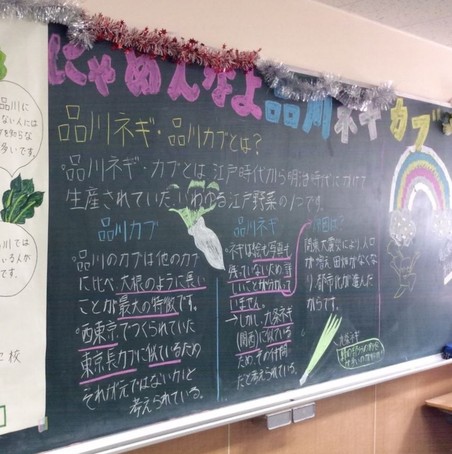 にゃめんなよ品川ネギカブ
品川ネギ・品川カブとは？
品川ネギ・カブとは江戸時代から明治時代にかけて
生産されていた、いわゆる江戸野菜の1つです。
品川カブ
品川のカブは他のカブ
に比べ、大根のように長い
ことが最大の特徴です。
西東京でつくられていた
東京長カブに似ているため
それが元ではないかと
考えられている。
品川ネギ
ネギは絵も写真も
残っていないため
いません。
→しかし、九条ネギ
(関西)に似ている
ため、その仲間
だと考えられている。
関東大震災により、人口
が増え、田畑がなくな
り、都市化が進んだ
からです。
品川に
ない人には
を知らな
多いです。
川では
いる人が
です。
校